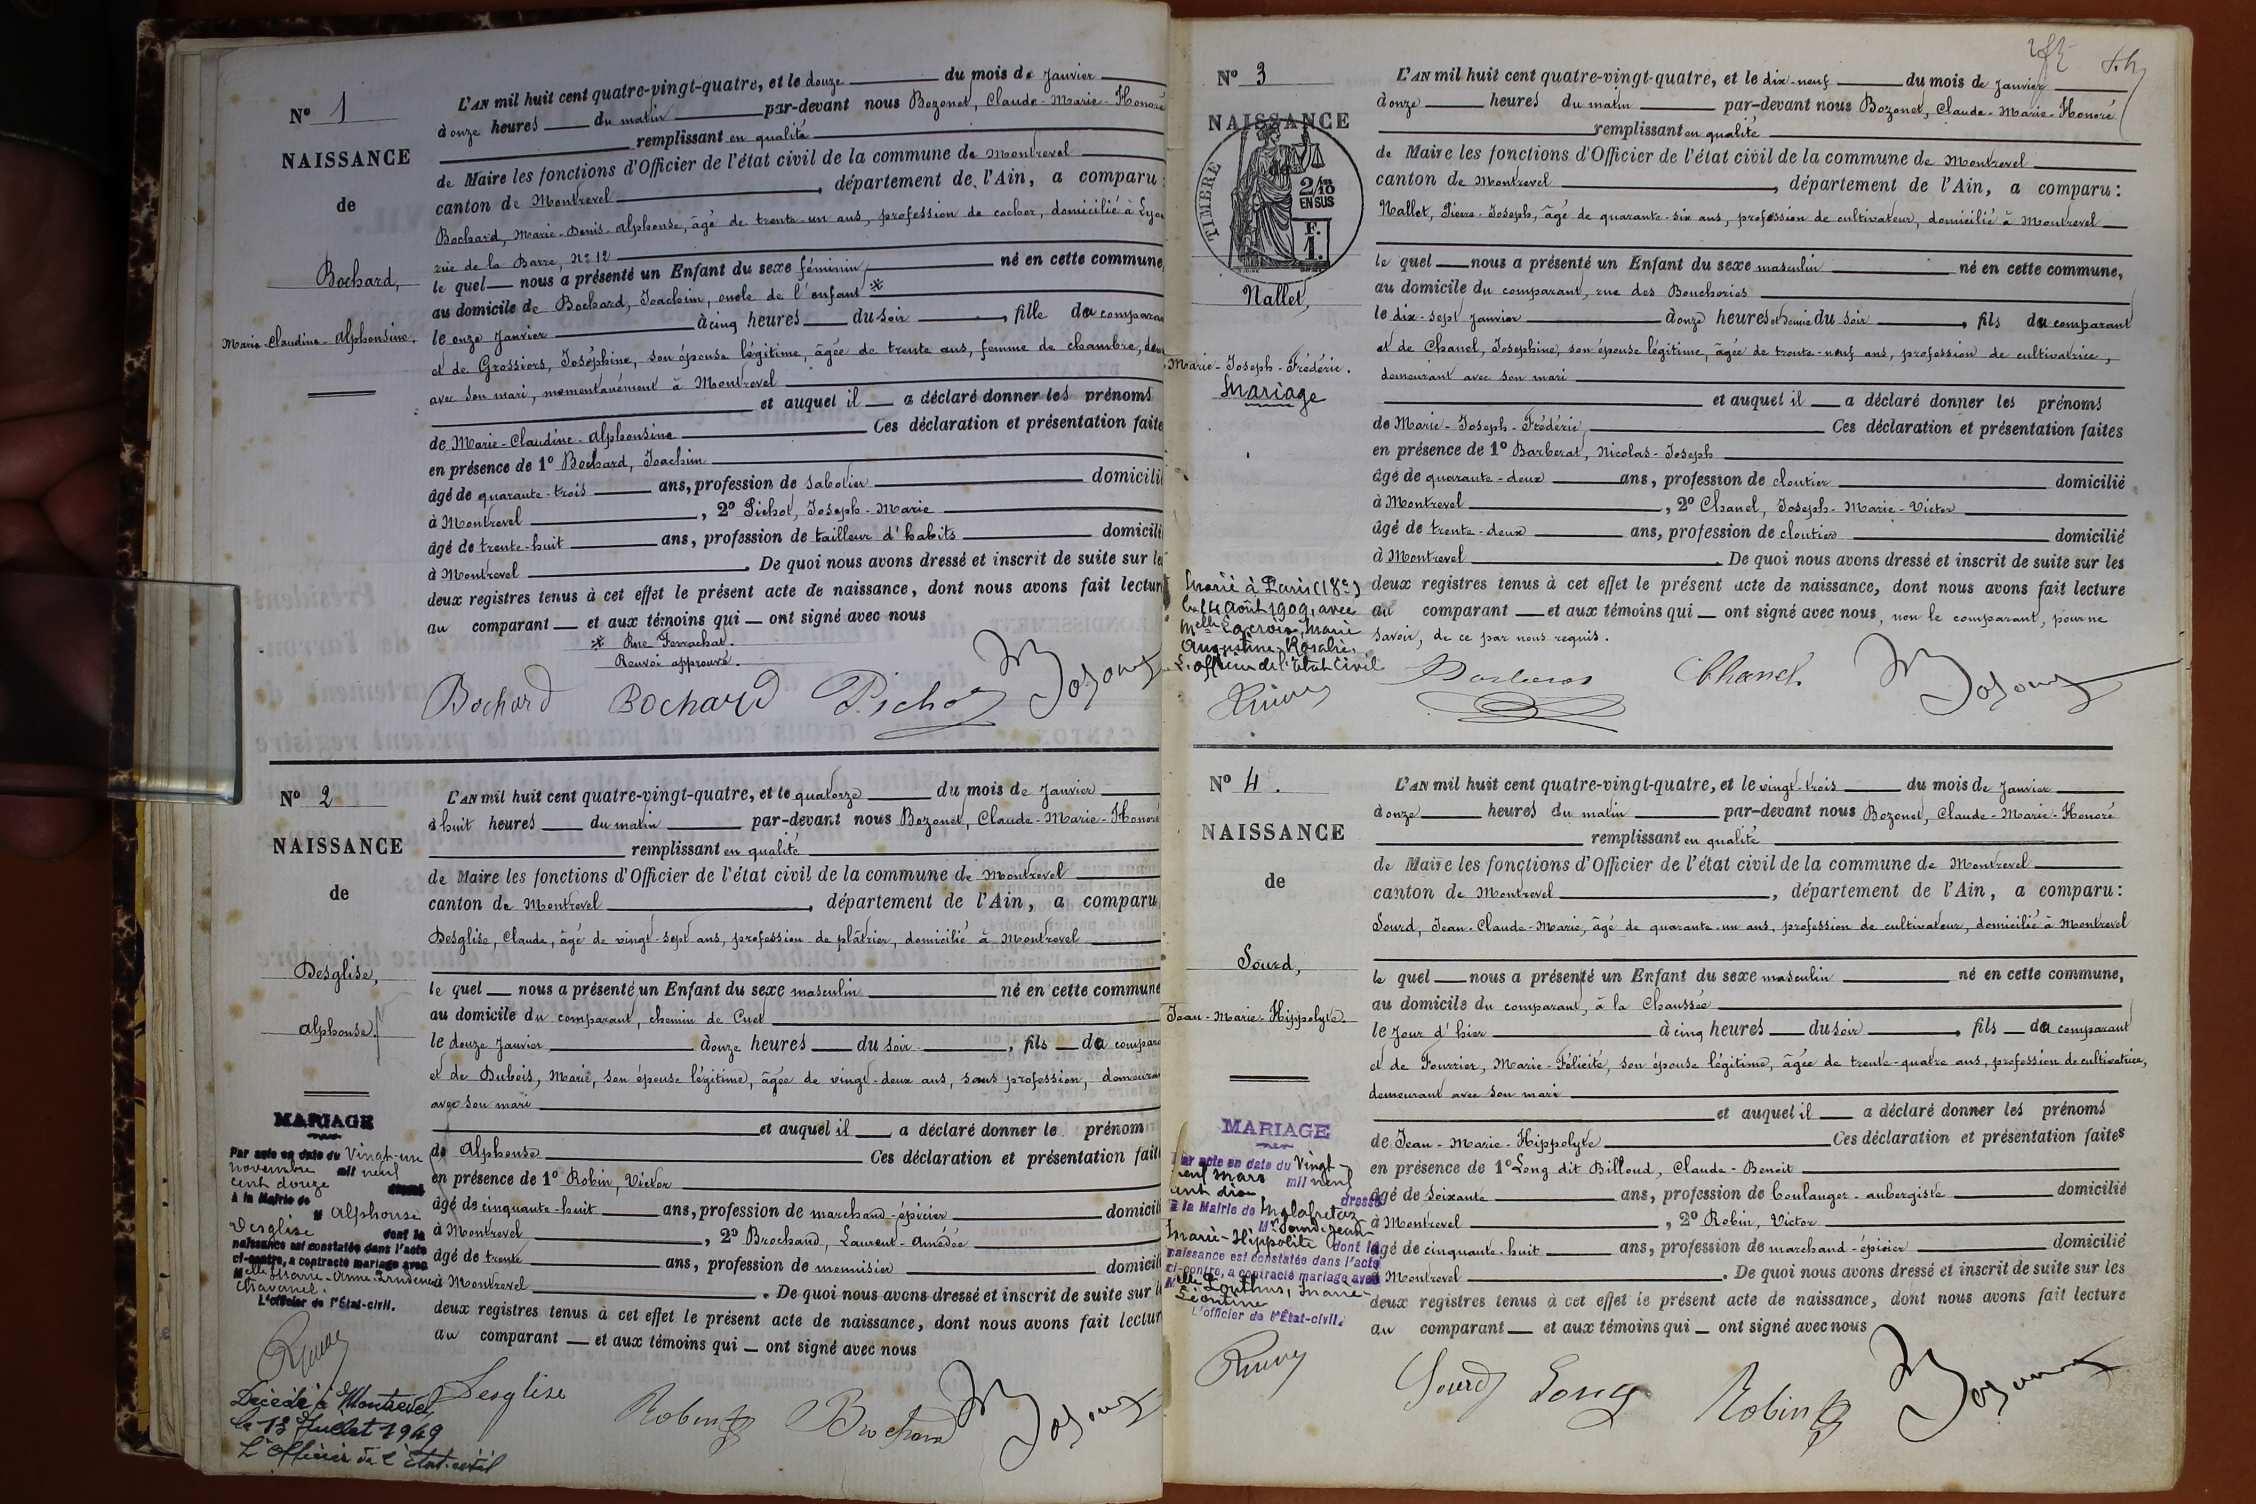 N° 1
NAISSANCE
de
Bochard,
Marie-Claudine-Alphonsine.
L'AN mil huit cent quatre-vingt-quatre, et le douze du mois de Janvier
à onze heures du matin par-devant nous Bozonet, Claude-Marie-Honoré
remplissant en qualité
de Maire les fonctions d'Officier de l'état civil de la commune de Montrevel
canton de Montrevel, département de l'Ain, a comparu:
Bochard, Marie-Denis-Alphonse, âgé de trente-un ans, profession de cocher, domicilié à Lyon
rue de la Barre, N° 12
le quel nous a présenté un Enfant du sexe féminin, né en cette commune,
au domicile de Bochard, Joachim, oncle de l'enfant *
le onze Janvier à cinq heures du soir, fille du comparant
et de Grossiors, Joséphine, son épouse légitime, âgée de trente ans, femme de chambre,
avec son mari, momentanément à Montrevel
et auquel il a déclaré donner les prénoms
de Marie-Claudine-Alphonsine Ces déclaration et présentation faites
en présence de 1° Bochard, Joachim
âgé de quarante-trois ans, profession de sabotier domicilié
à Montrevel, 2° Pichot, Joseph-Marie
âgé de trente-huit ans, profession de tailleur d'habits domicilié
à Montrevel. De quoi nous avons dressé et inscrit de suite sur les
deux registres tenus à cet effet le présent acte de naissance, dont nous avons fait lecture
au comparant et aux témoins qui ont signé avec nous
* Rue Ferrachat.
Renvoi approuvé.
Bochard Bochard Pichot Bozonet
N° 2
NAISSANCE
de
Desglise,
Alphonse.
L'AN mil huit cent quatre-vingt-quatre, et le quatorze du mois de Janvier
à huit heures du matin par-devant nous Bozonet, Claude-Marie-Honoré
remplissant en qualité
de Maire les fonctions d'Officier de l'état civil de la commune de Montrevel
canton de Montrevel, département de l'Ain, a comparu
Desglise, Claude, âgé de vingt-sept ans, profession de plâtrier, domicilié à Montrevel
le quel nous a présenté un Enfant du sexe masculin né en cette commune
au domicile du comparant, chemin de Cuet
le douze Janvier à onze heures du soir, fils du comparant
et de Dubois, Marie, son épouse légitime, âgée de vingt-deux ans, sans profession, demeurant
avec son mari
et auquel il a déclaré donner le prénom
de Alphonse Ces déclaration et présentation faites
en présence de 1° Robin, Victor
âgé de cinquante-huit ans, profession de marchand-épicier domicilié
à Montrevel, 2° Brochand, Laurent-Amédée
âgé de trente ans, profession de menuisier domicilié
à Montrevel. De quoi nous avons dressé et inscrit de suite sur les
deux registres tenus à cet effet le présent acte de naissance, dont nous avons fait lecture
au comparant et aux témoins qui ont signé avec nous
Desglise Robin Brochand Bozonet
MARIAGE
Par acte en date du Vingt-un
novembre mil neuf
cent douze dressé
à la Mairie de
M Alphonse
Desglise dont la
naissance est constatée dans l'acte
ci-contre, a contracté mariage avec
Melle Marie-Anne-Prudence
Chavanel.
L'officier de l'État-civil.
Décédé à Montrevel
le 13 Juillet 1949
L'Officier de l'état-civil
N° 3
NAISSANCE
de
TIMBRE
2/10 EN SUS
F. 1.
Nallet,
Marie-Joseph-Frédéric.
Mariage
L'AN mil huit cent quatre-vingt-quatre, et le dix-neuf du mois de Janvier
à onze heures du matin par-devant nous Bozonet, Claude-Marie-Honoré
remplissant en qualité
de Maire les fonctions d'Officier de l'état civil de la commune de Montrevel
canton de Montrevel, département de l'Ain, a comparu:
Nallet, Pierre-Joseph, âgé de quarante-six ans, profession de cultivateur, domicilié à Montrevel
le quel nous a présenté un Enfant du sexe masculin né en cette commune,
au domicile du comparant, rue des Boucheries
le dix-sept Janvier à onze heures et demie du soir, fils du comparant
et de Chanel, Josephine, son épouse légitime, âgée de trente-neuf ans, profession de cultivatrice,
demeurant avec son mari
et auquel il a déclaré donner les prénoms
de Marie-Joseph-Frédéric Ces déclaration et présentation faites
en présence de 1° Barberat, Nicolas-Joseph
âgé de quarante-deux ans, profession de cloutier domicilié
à Montrevel, 2° Chanel, Joseph-Marie-Victor
âgé de trente-deux ans, profession de cloutier domicilié
à Montrevel. De quoi nous avons dressé et inscrit de suite sur les
deux registres tenus à cet effet le présent acte de naissance, dont nous avons fait lecture
au comparant et aux témoins qui ont signé avec nous, non le comparant, pour ne
savoir, de ce par nous requis.
Marié à Paris (18e)
le 14 août 1909, avec
Melle Lacroix, Marie
Augustine-Rosalie.
L'officier de l'État Civil
Barberat Chanel Bozonet
N° 4.
NAISSANCE
de
Sourd,
Jean-Marie-Hippolyte.
L'AN mil huit cent quatre-vingt-quatre, et le vingt-trois du mois de Janvier
à onze heures du matin par-devant nous Bozonet, Claude-Marie-Honoré
remplissant en qualité
de Maire les fonctions d'Officier de l'état civil de la commune de Montrevel
canton de Montrevel, département de l'Ain, a comparu:
Sourd, Jean-Claude-Marie, âgé de quarante-un ans, profession de cultivateur, domicilié à Montrevel
le quel nous a présenté un Enfant du sexe masculin né en cette commune,
au domicile du comparant, à la Chaussée
le jour d'hier à cinq heures du soir, fils du comparant
et de Fourrier, Marie-Félicité, son épouse légitime, âgée de trente-quatre ans, profession de cultivatrice,
demeurant avec son mari
et auquel il a déclaré donner les prénoms
de Jean-Marie-Hippolyte Ces déclaration et présentation faites
en présence de 1° Long dit Billoud, Claude-Benoit
âgé de soixante ans, profession de boulanger-aubergiste domicilié
à Montrevel, 2° Robin, Victor
âgé de cinquante-huit ans, profession de marchand-épicier domicilié
à Montrevel. De quoi nous avons dressé et inscrit de suite sur les
deux registres tenus à cet effet le présent acte de naissance, dont nous avons fait lecture
au comparant et aux témoins qui ont signé avec nous
MARIAGE
Par acte en date du Vingt-
neuf mars mil neuf
cent dix dressé
à la Mairie de
Mr Sourd, Jean-
Marie-Hippolite dont la
naissance est constatée dans l'acte
ci-contre, a contracté mariage avec
Melle Marie-
Léontine
L'officier de l'État-civil.
Sourd Long Robin Bozonet